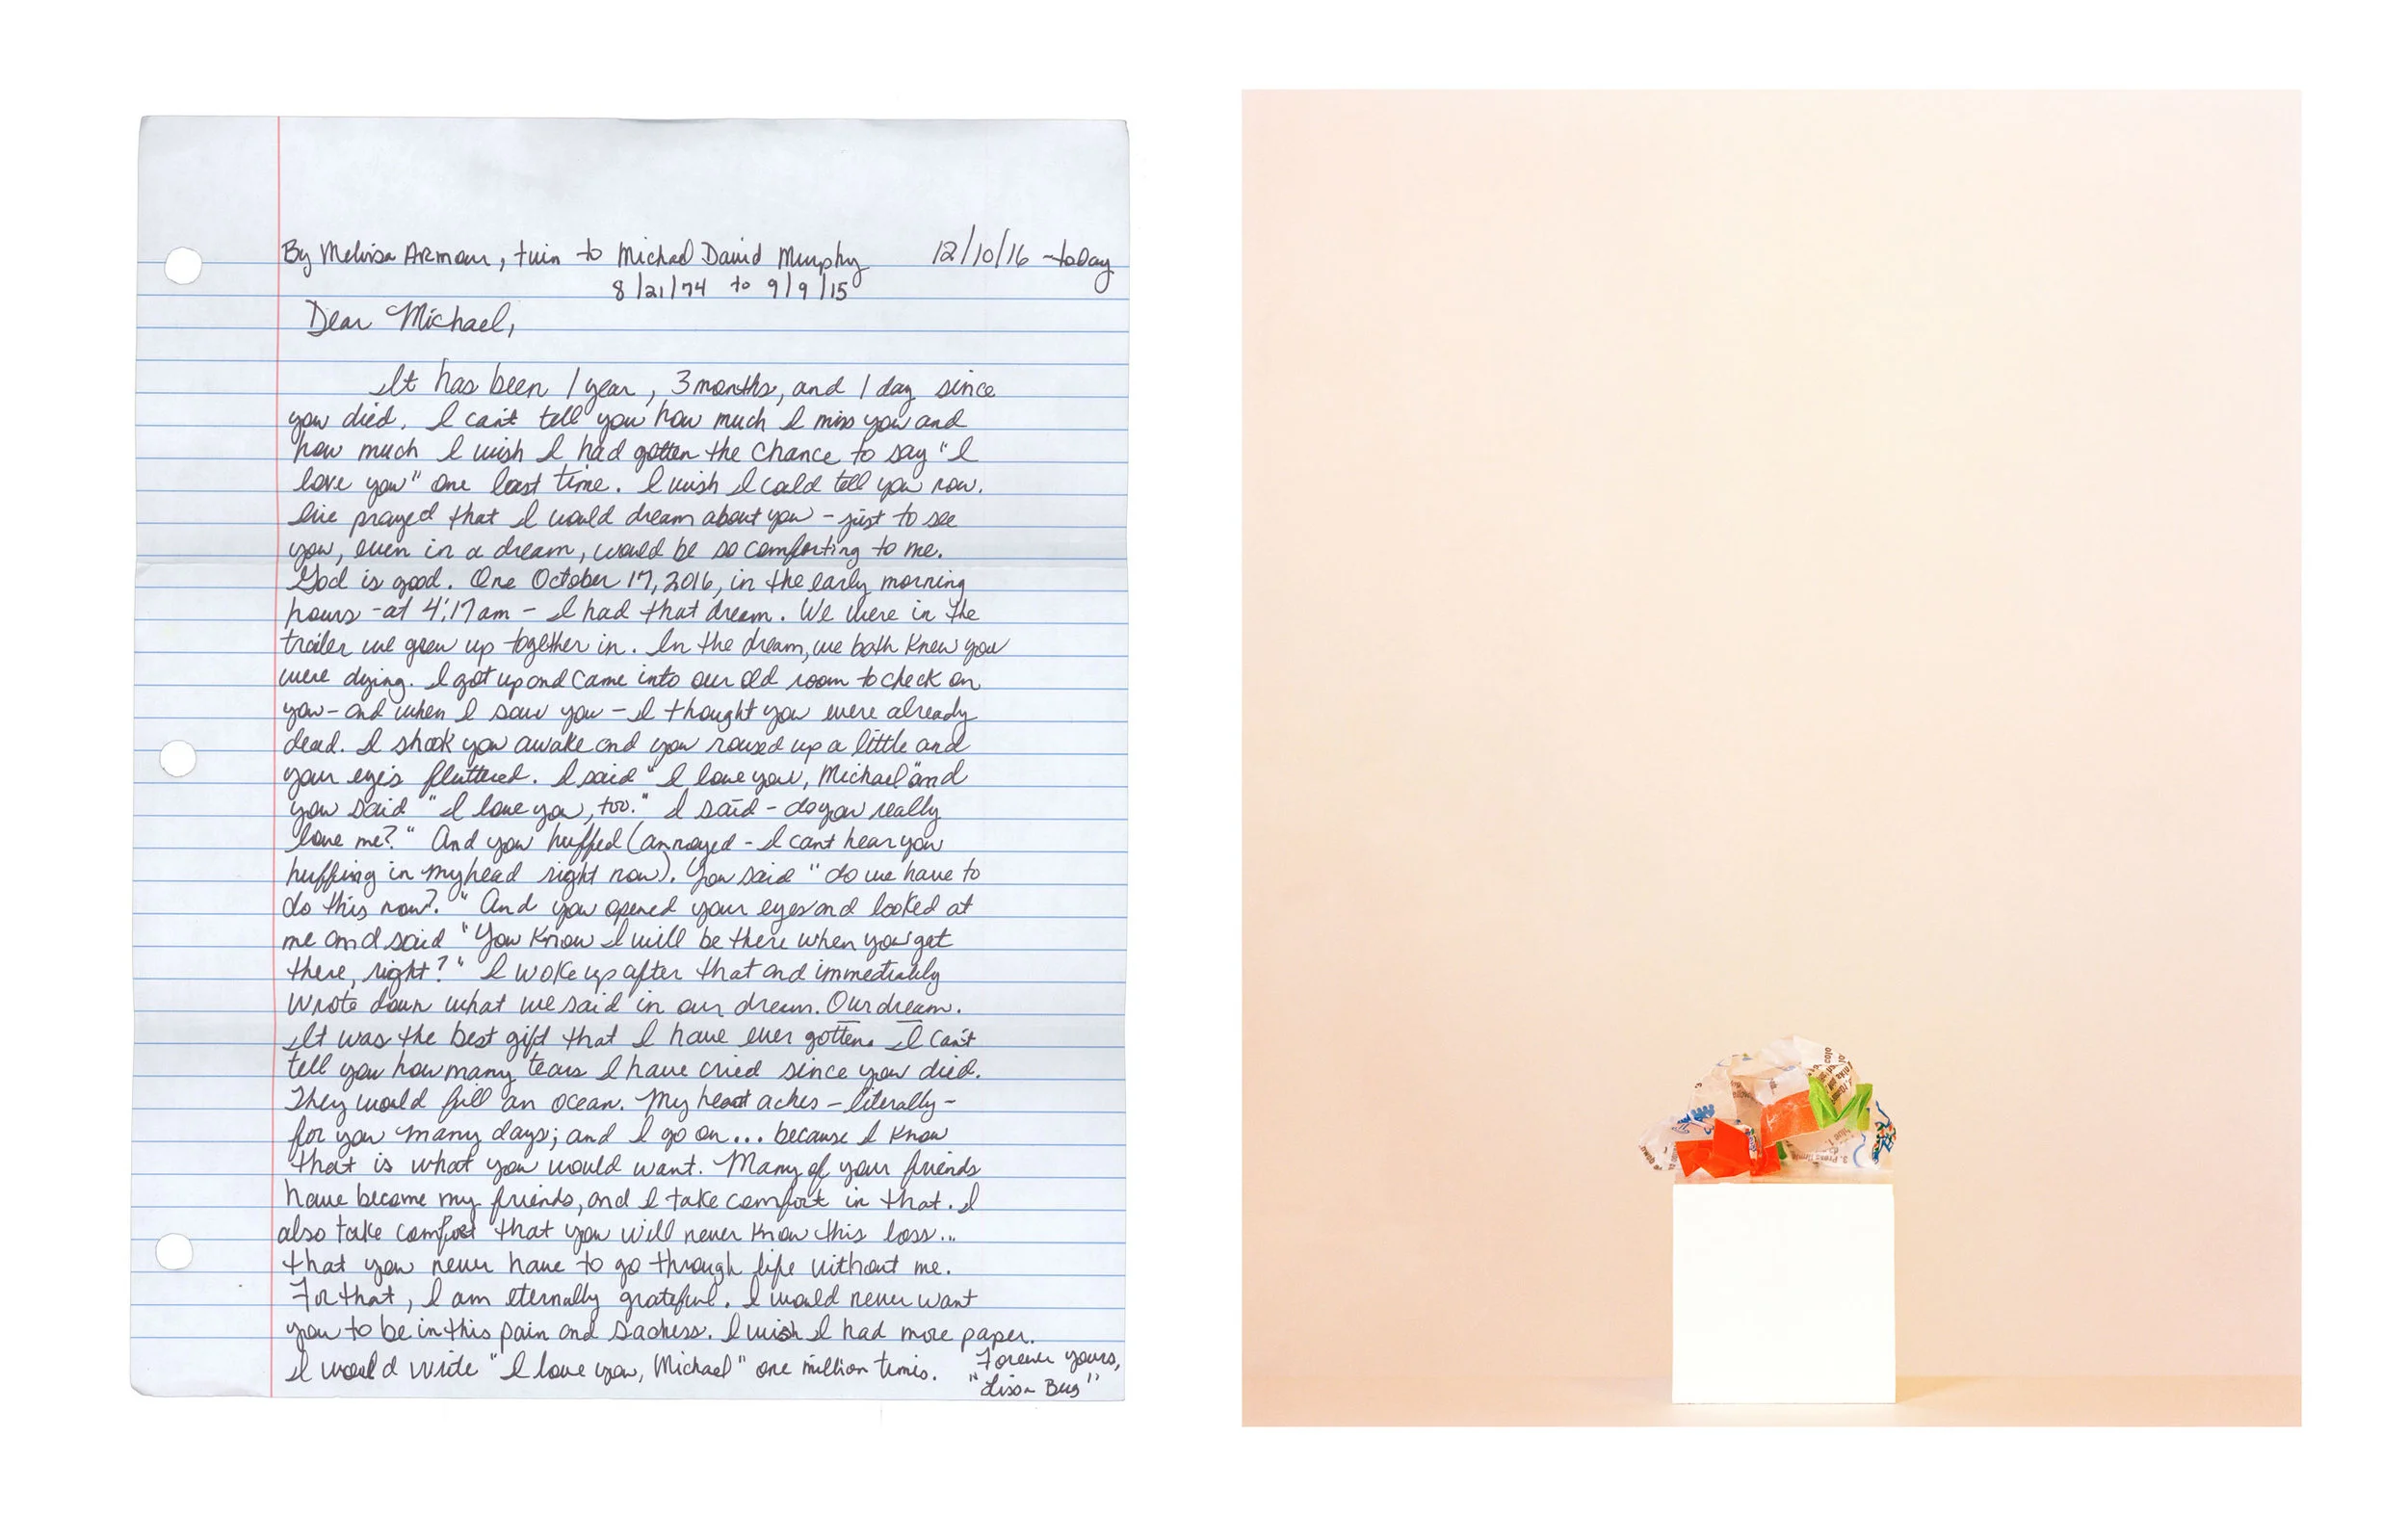 By Melissa Armour, twin to Michael David Murphy 12/10/16 - today
8/21/74 to 9/9/15
Dear Michael,
It has been 1 year, 3 months, and 1 day since
you died. I can't tell you how much I miss you and
how much I wish I had gotten the chance to say "I
love you" one last time. I wish I could tell you now.
I've prayed that I would dream about you - just to see
you, even in a dream, would be so comforting to me.
God is good. One October 17, 2016, in the early morning
hours - at 4:17 am - I had that dream. We were in the
trailer we grew up together in. In the dream, we both knew you
were dying. I got up and came into our old room to check on
you - and when I saw you - I thought you were already
dead. I shook you awake and you roused up a little and
your eyes fluttered. I said "I love you, Michael" and
you said "I love you, too." I said - do you really
love me?" And you huffed (annoyed - I cant hear you
huffing in my head right now). You said "do we have to
do this now?" And you opened your eyes and looked at
me and said "You know I will be there when you get
there, right?" I woke up after that and immediately
wrote down what we said in our dream. Our dream.
It was the best gift that I have ever gotten. I can't
tell you how many tears I have cried since you died.
They would fill an ocean. My heart aches - literally -
for you many days; and I go on... because I know
that is what you would want. Many of your friends
have become my friends, and I take comfort in that. I
also take comfort that you will never know this loss...
that you never have to go through life without me.
For that, I am eternally grateful. I would never want
you to be in this pain and sadness. I wish I had more paper.
I would write "I love you, Michael" one million times. Forever yours,
"Lissa Bug"